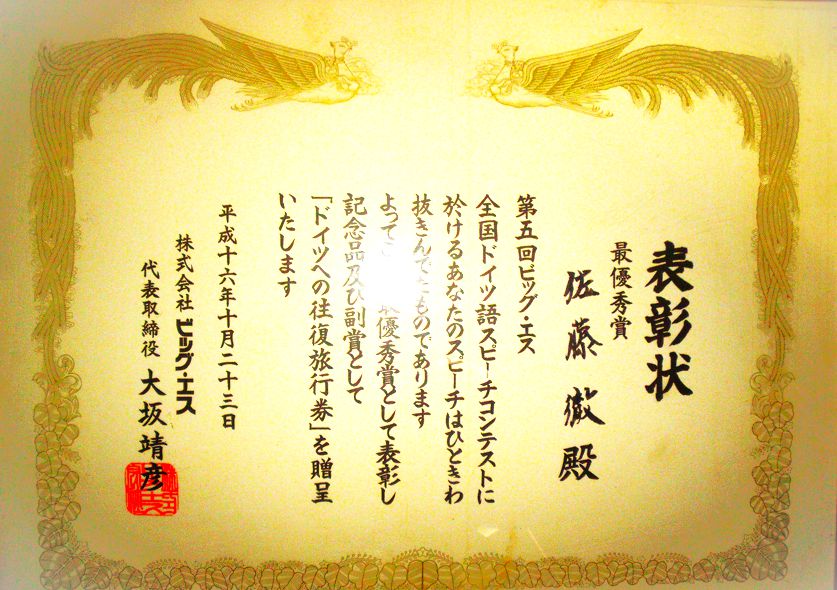 表彰状
最優秀賞
佐藤徹殿
第五回ビッグ・エス
全国ドイツ語スピーチコンテストに
於けるあなたのスピーチはひときわ
抜きんでたものであります
よって 最優秀賞として表彰し
記念品及び副賞として
「ドイツへの往復旅行券」を贈呈
いたします
平成十六年十月二十三日
株式会社ビッグ・エス
代表取締役 大坂靖彦